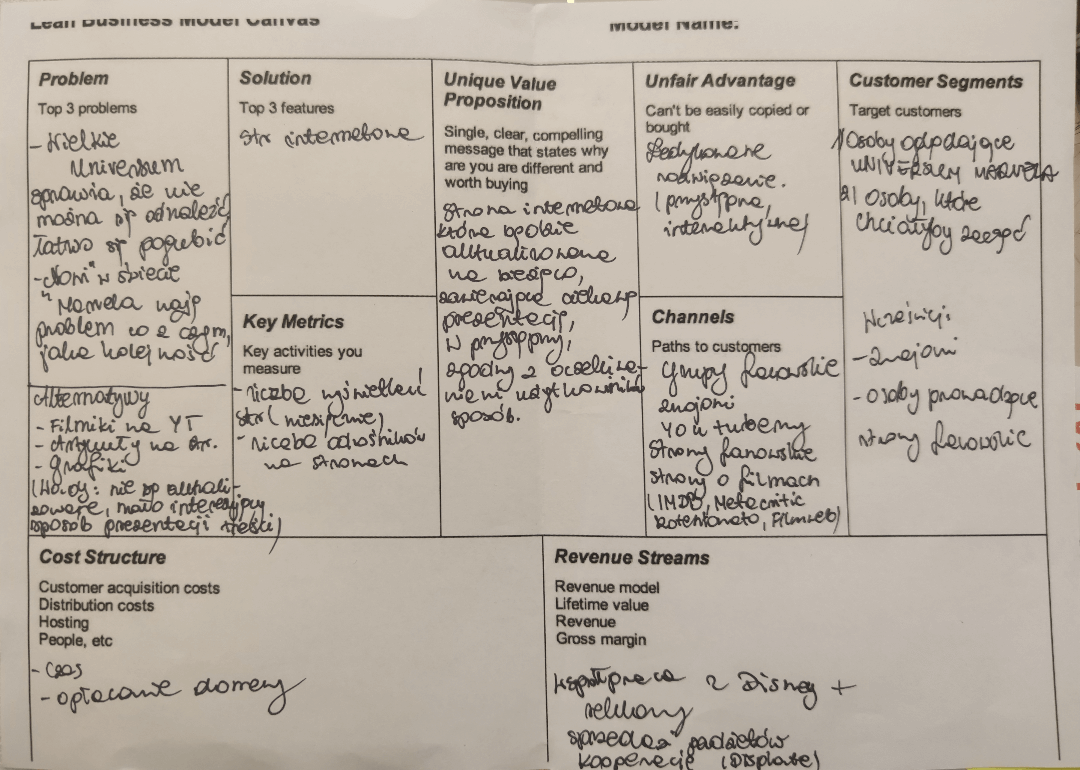 Lean Business Model Canvas
Model Name:
Problem
Top 3 problems
- Wielkie
Uniwersum
sprawia, że nie
można się odnaleźć
łatwo się pogubić
- "Nowi" w świecie
Marvela mają
problem co z czym,
jaka kolejność
Alternatywy
- Filmiki na YT
- Artykuły na str.
- grafiki
(Wady: nie są aktuali-
zowane, mało interesujący
sposób prezentacji treści)
Solution
Top 3 features
Str internetowa
Key Metrics
Key activities you
measure
- liczba wyświetleń
str (miesięcznie)
- liczba odnośników
na stronach
Unique Value
Proposition
Single, clear, compelling
message that states why
are you are different and
worth buying
Strona internetowa
która będzie
aktualizowana
na bieżąco,
zawierająca ciekawe
prezentacje,
w przystępny,
zgodny z oczekiwa-
niami użytkowników
sposób.
Unfair Advantage
Can't be easily copied or
bought
Dedykowane
rozwiązanie.
(przystępne,
interaktywne)
Channels
Paths to customers
Grupy fanowskie
znajomi
You tuberzy
Strony fanowskie
strony o filmach
(IMDB, Metacritic
Rotentomato, Filmweb)
Customer Segments
Target customers
1) Osoby oglądające
UNIVERSUM MARVELA
2) Osoby, które
chciałyby zacząć
Wcześniej:
- znajomi
- osoby prowadzące
strony fanowskie
Cost Structure
Customer acquisition costs
Distribution costs
Hosting
People, etc
- Czas
- opłacanie domeny
Revenue Streams
Revenue model
Lifetime value
Revenue
Gross margin
Współpraca z Disney +
reklamy
sprzedaż gadżetów
kooperacje (Displate)